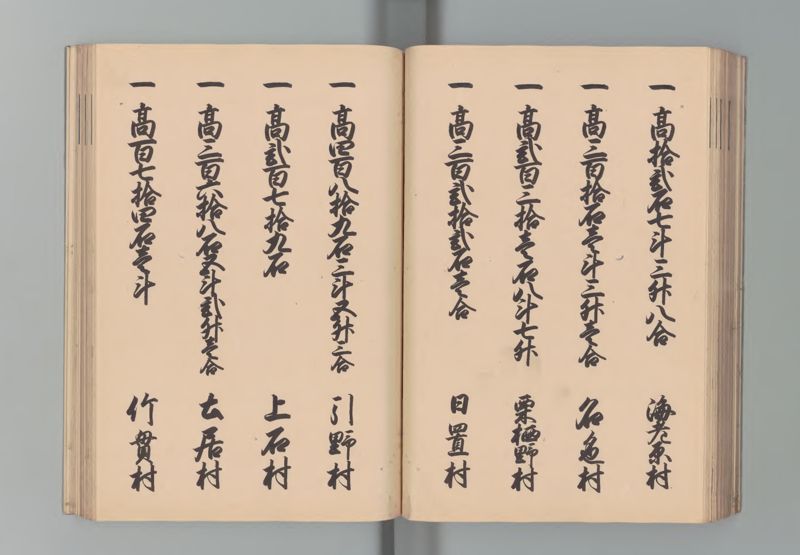 一 高拾弐石七斗三升八合 海老原村
一 高三百拾石壱斗三升壱合 名色村
一 高弐百三拾壱石八斗七升 栗栖野村
一 高三百弐拾弐石壱合 日置村
一 高四百八拾九石三斗五升三合 引野村
一 高弐百七拾九石 上石村
一 高三百六拾八石五斗弐升壱合 土居村
一 高百七拾四石壱斗 竹貫村